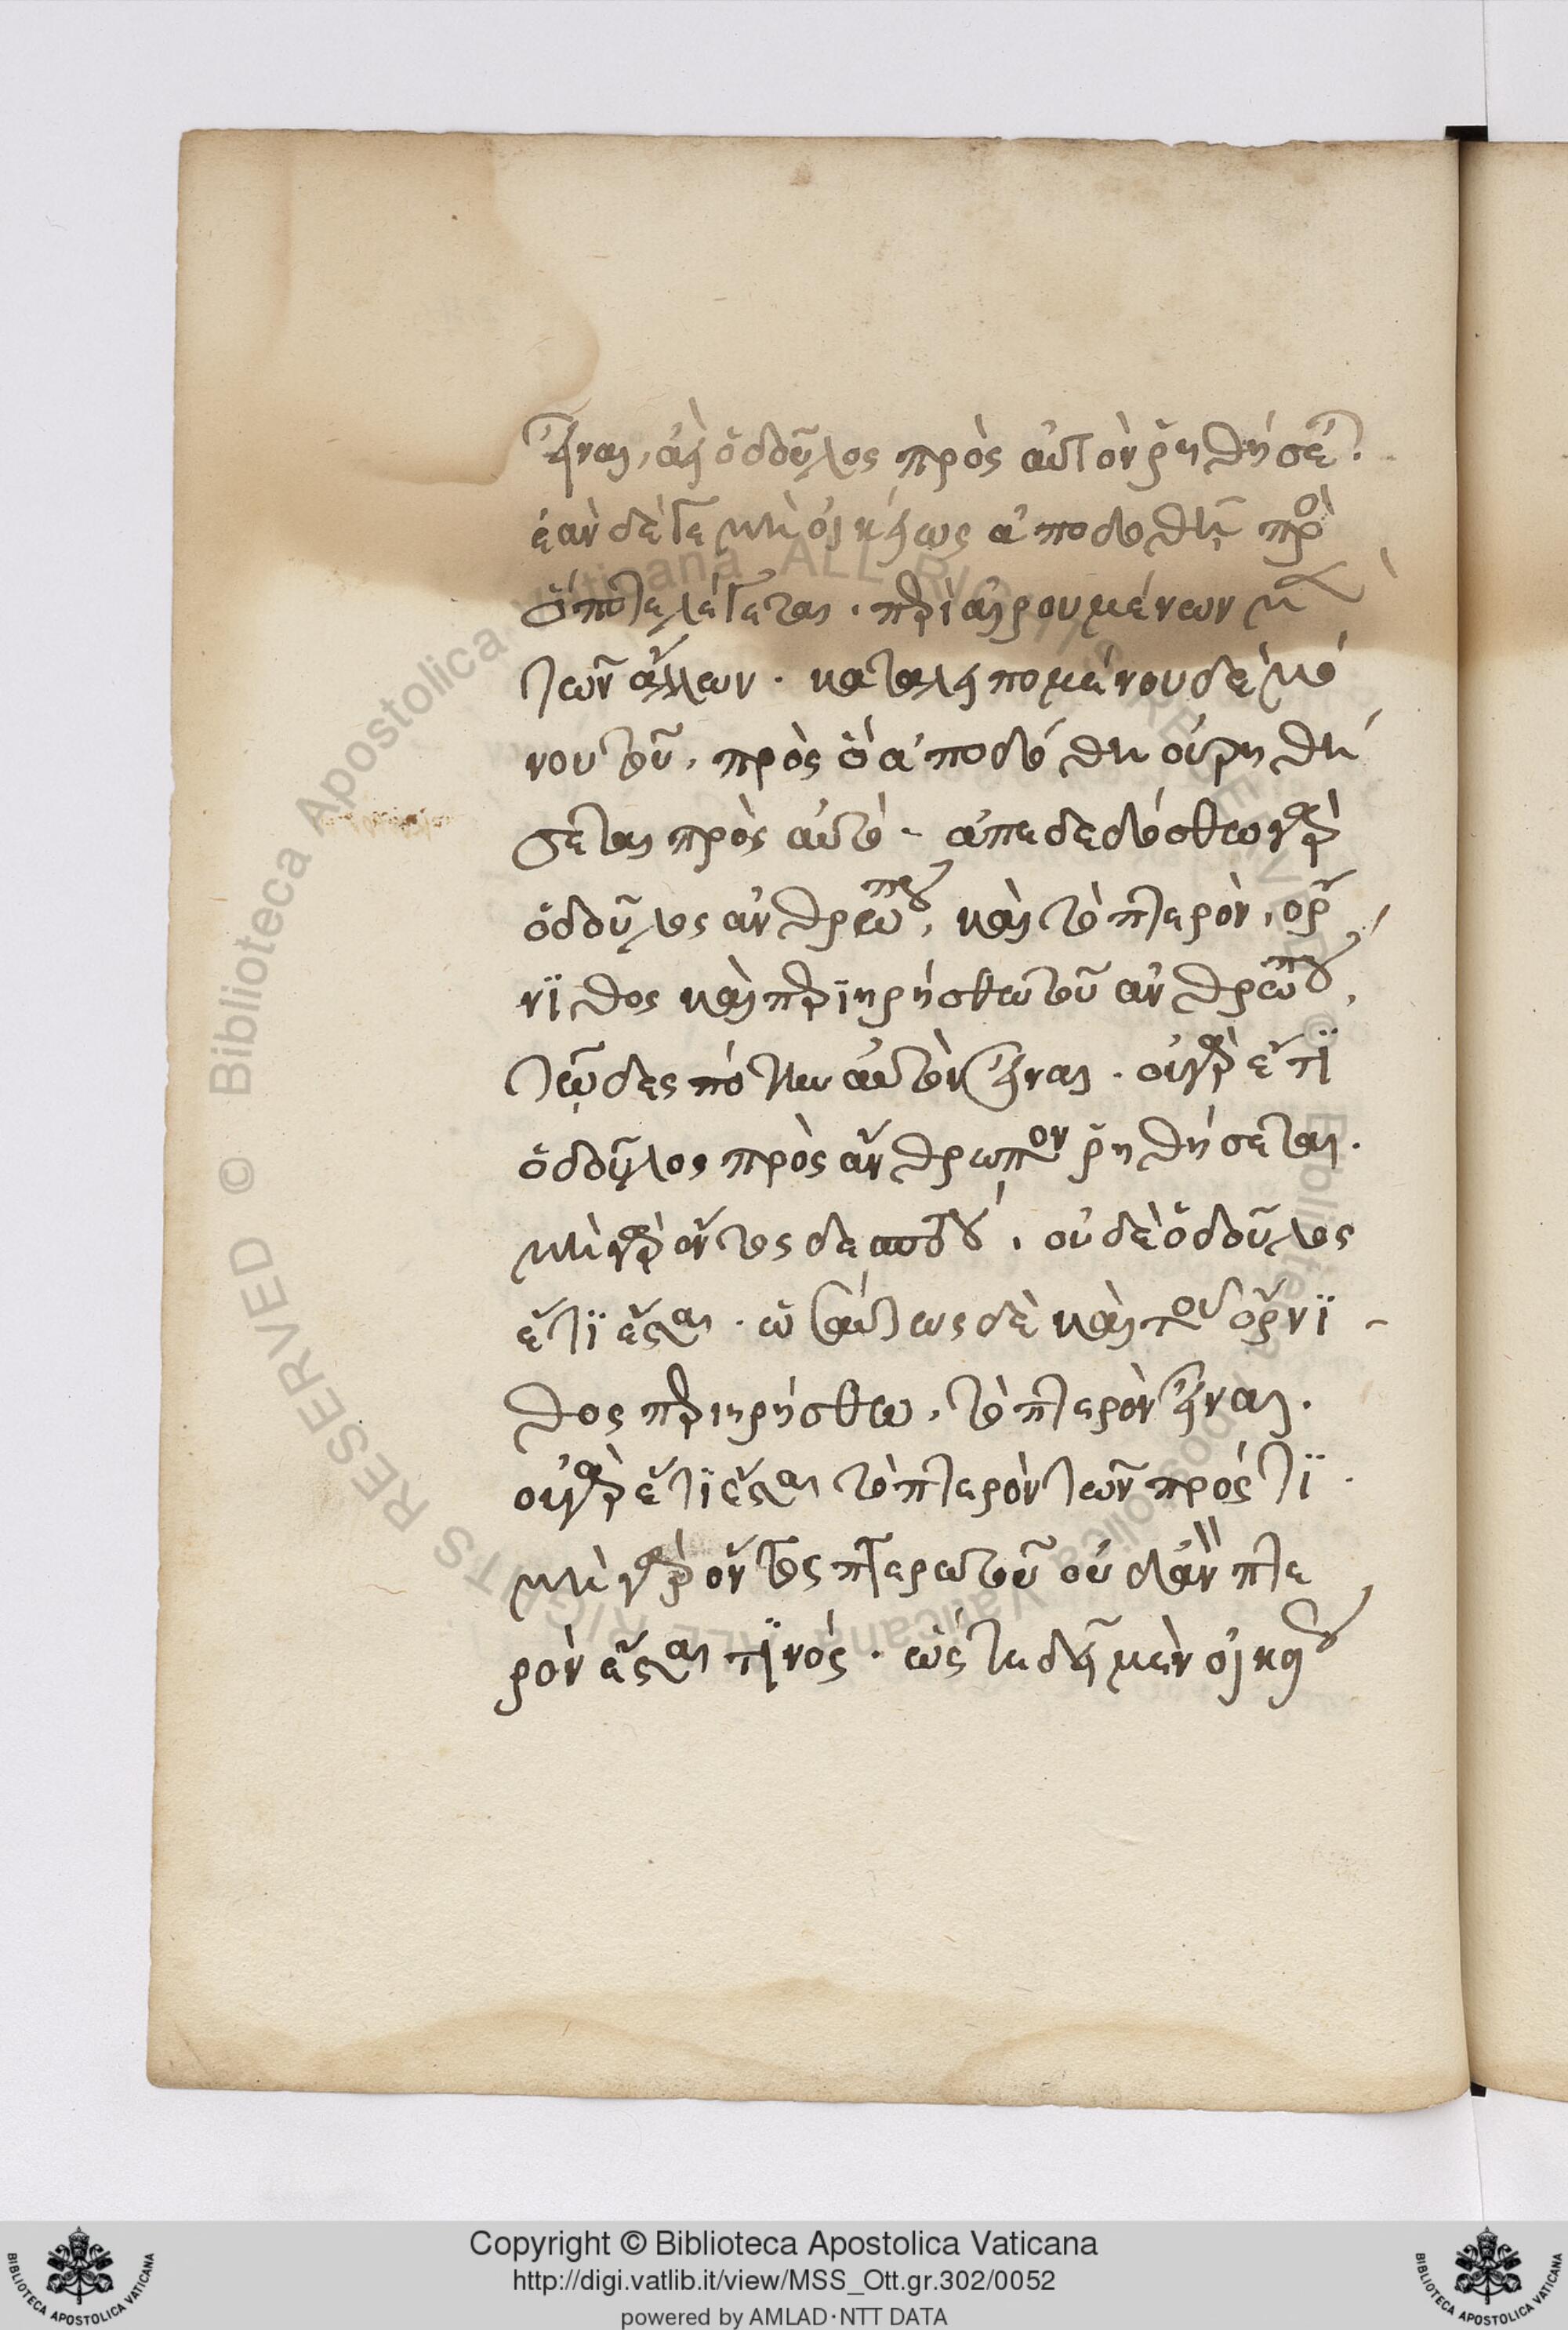 εἶναι, ἀεὶ ὁ δοῦλος πρὸς αὐτὸν ῥηθήσε.
ἐὰν δέ γε μὴ οἰκείως ἀποδοθῇ πρὸ
ὅ ποτε λέγεται. περιαιρουμένων μ
τῶν ἄλλων. καταλειπομένου δὲ μό
νου τοῦ, πρὸς ὃ ἀπεδόθη οὐ ῥηθή
σεται πρὸς αὐτό. ἀποδεδόσθω γὰρ
ὁ δοῦλος ἀνθρώπου, καὶ τὸ πτερὸν, ὄρ
νιθος καὶ περιῃρήσθω τοῦ ἀνθρώπου,
τῷ δεσπότην αὐτὸν εἶναι. οὐ γὰρ ἔτι
ὁ δοῦλος πρὸς ἄνθρωπον ῥηθήσεται.
μὴ γὰρ ὄντος δεσπότου, οὐδὲ ὁ δοῦλος
ἔτι ἔσται. ὡσαύτως δὲ καὶ τοῦ ὄρνι-
θος περιῃρήσθω, τὸ πτερὸν εἶναι.
οὐ γὰρ ἔτι ἔσται τὸ πτερὸν τῶν πρός τι.
μὴ γὰρ ὄντος πτερωτοῦ οὐδ᾽ ἂν πτε
ρὸν ἔσται τινός. ὥστε δεῖ μὲν οἰκεί
© Biblioteca Apostolica Vaticana ALL RIGHTS RESERVED
© Biblioteca Apostolica Vaticana ALL RIGHTS RESERVED
Copyright © Biblioteca Apostolica Vaticana
http://digi.vatlib.it/view/MSS_Ott.gr.302/0052
powered by AMLAD·NTT DATA
BIBLIOTECA APOSTOLICA VATICANA
BIBLIOTECA APOSTOLICA VATICANA